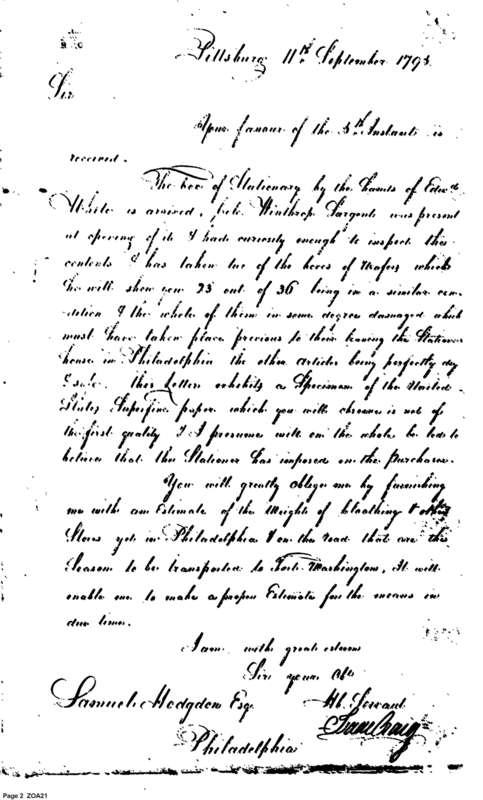 Pittsburg 11th September 1793
Sir
Your favour of the 5th Instant is
received.
The box of Stationary by the hands of Edwd
White is arrived, Colo. Winthrop Sargent was present
at opening of it & had curiosity enough to inspect the
contents & has taken two of the boxes of Wafers which
he will shew you 23 out of 36 being in a similar con-
dition & the whole of them in some degree damaged which
must have taken place previous to their leaving the Stationers
house in Philadelphia the other articles being perfectly dry
& safe. this Letter exhibits a Specimen of the United
States Superfine paper which you will observe is not of
the first quality & I presume will on the whole be led to
believe that the Stationer has imposed on the Purchaser.
You will greatly oblige me by furnishing
me with an Estimate of the Weight of Cloathing & other
Stores yet in Philadelphia & on the road that are this
Season to be transported to Fort Washington, It will
enable me to make a proper Estimate for the means in
due time.
I am with great esteem
Sir your Obt
Hb. Servant
Samuel Hodgdon Esqr.
Isaac Craig
Philadelphia
Page 2 ZOA21